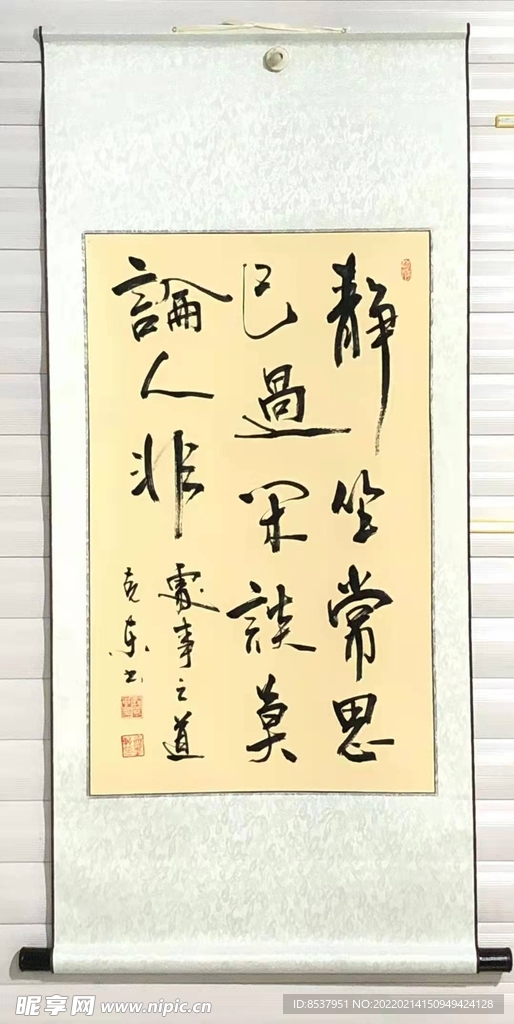 静坐常思
己過閑談莫
論人非
處事之道
克東书
昵享网 www.nipic.cn
ID:8537951 NO:20220214150949424128